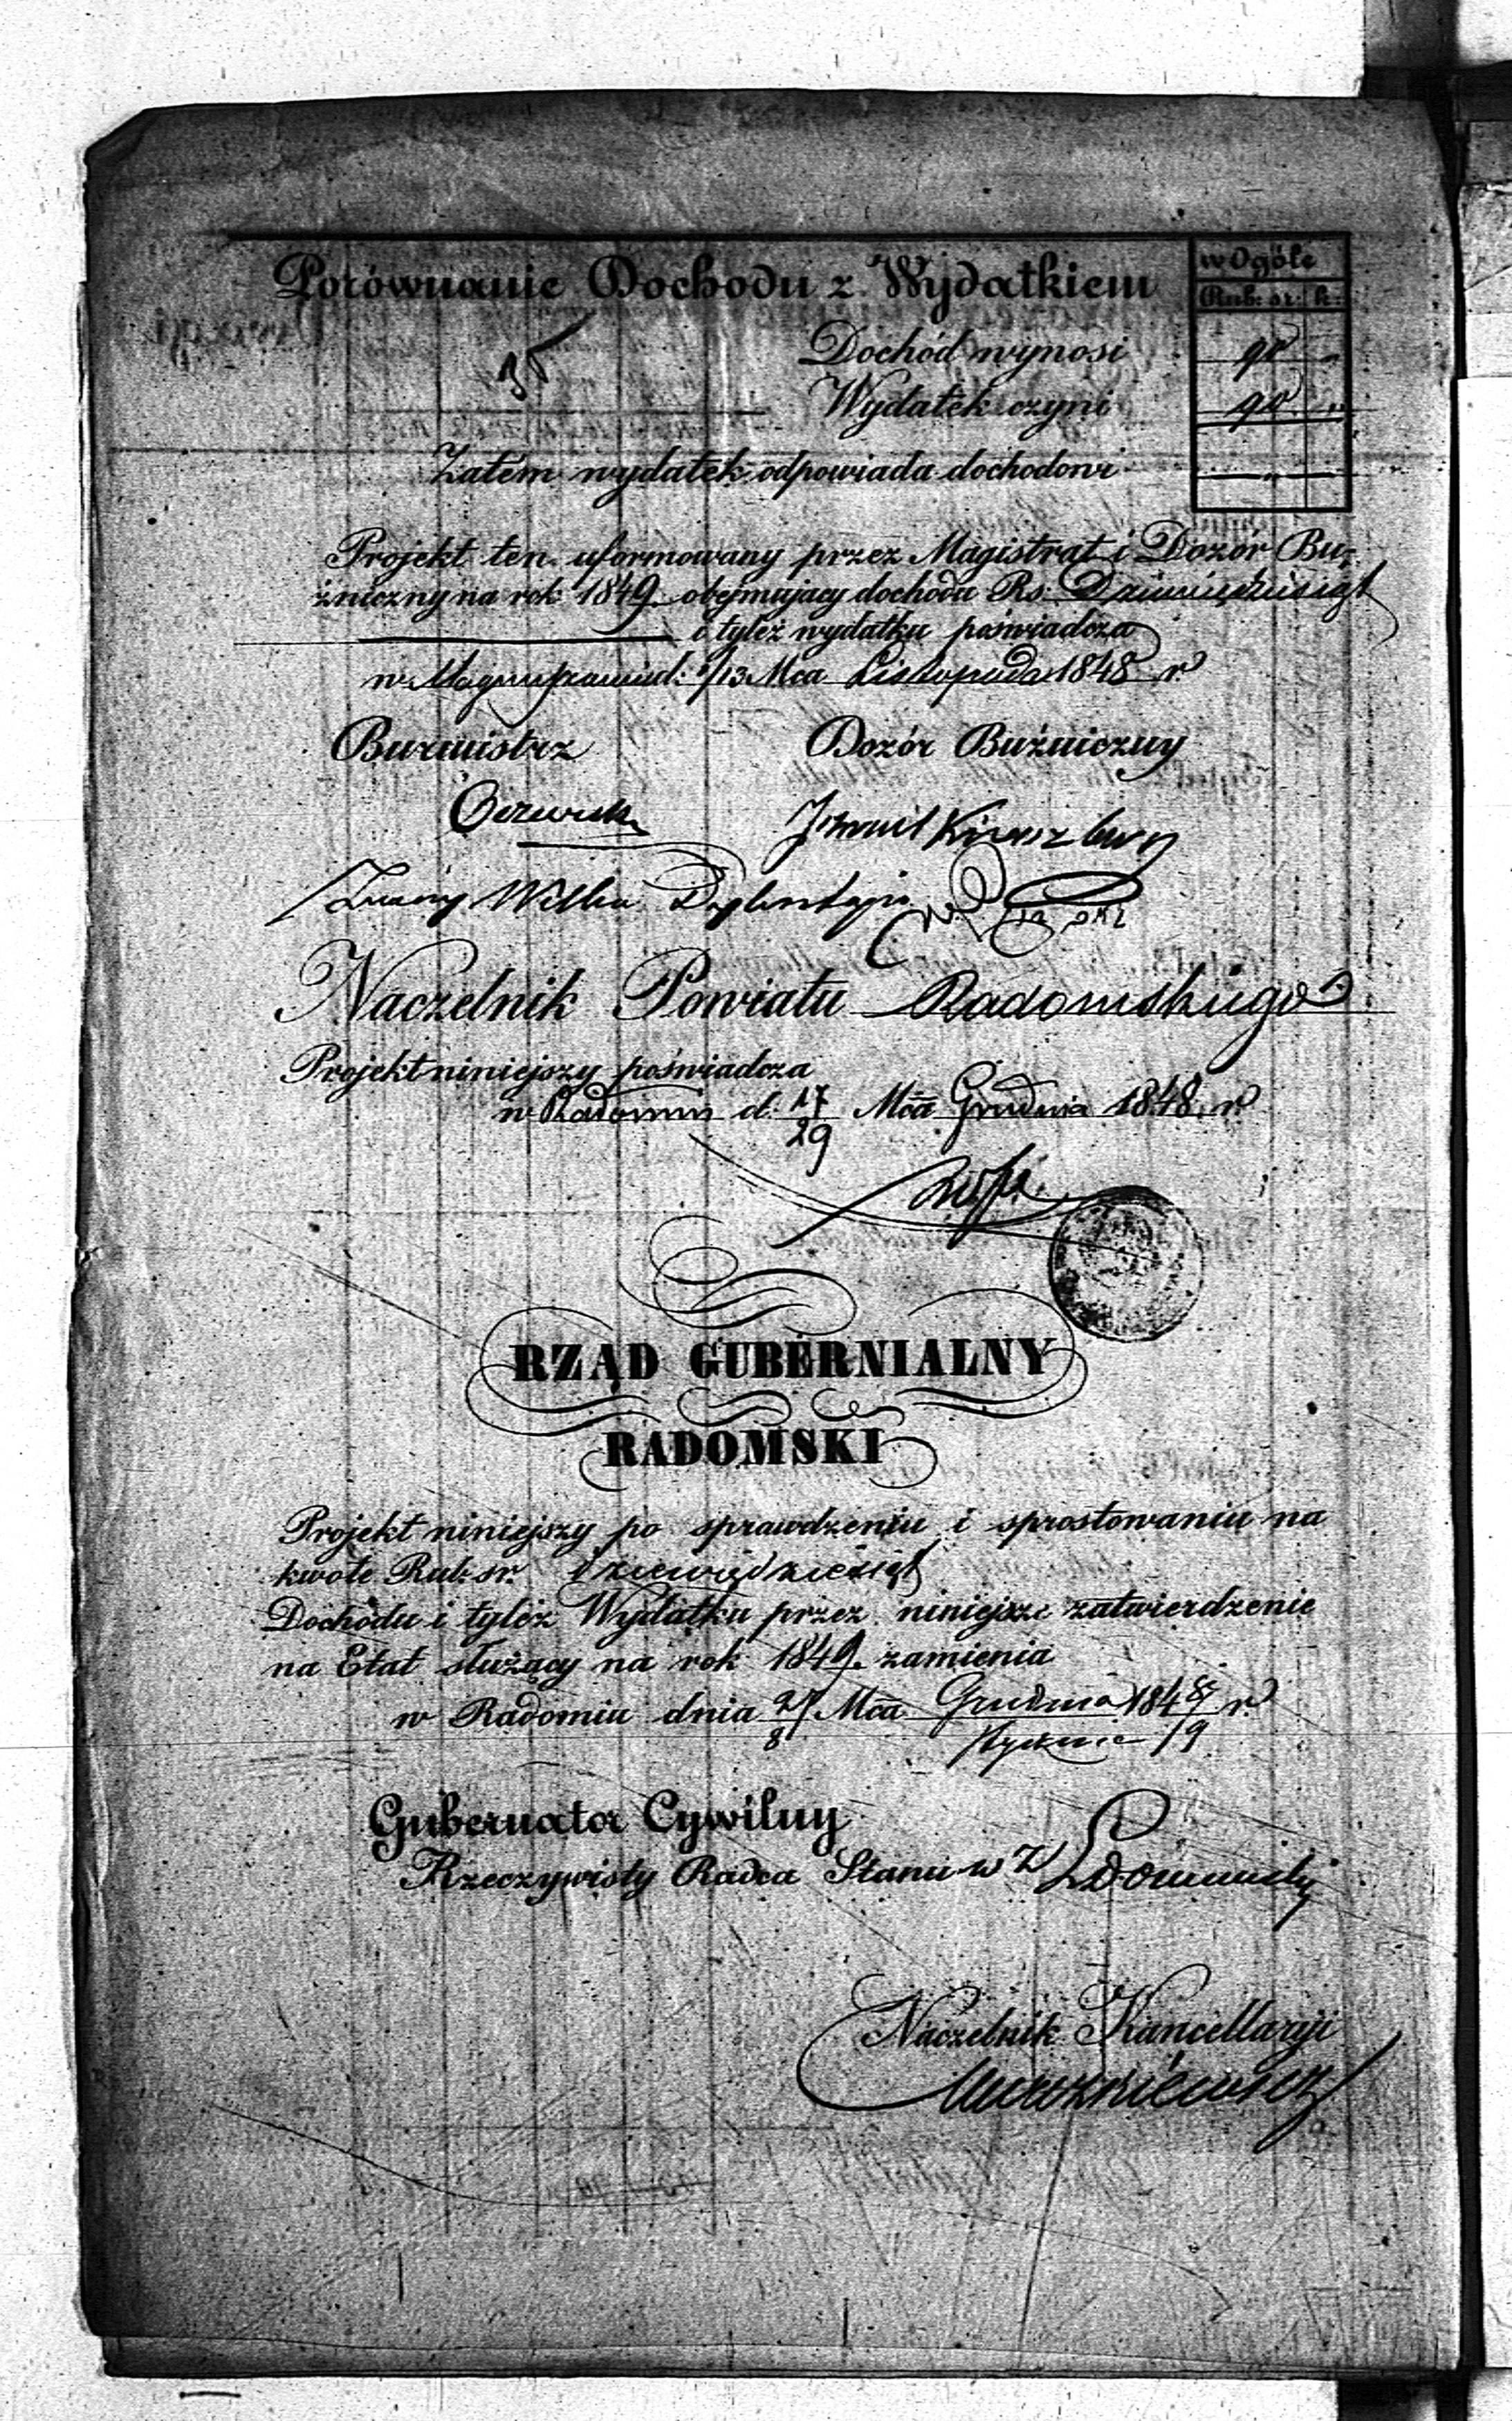 Porównanie Dochodu z Wydatkiem
w Ogóle
Rub: sr: k:
35
Dochód wynosi 90 „
Wydatek czyni 90 „
Zatem wydatek odpowiada dochodowi „
Projekt ten uformowany przez Magistrat i Dozór Bu-
żniczny na rok 1849. obejmujący dochodu Rs. Dziewiędziesiąt
i tyleż wydatku poświadcza
w d: 1/13 Mca Listopada 1848 r.
Burmistrz Dozór Bużniczny
Kirszbürg
Naczelnik Powiatu Radomskiego
Projekt niniejszy poświadcza
w Radomiu d: 17/29 Mca Grudnia 1848. r.
RZĄD GUBERNIALNY
RADOMSKI
Projekt niniejszy po sprawdzeniu i sprostowaniu na
kwotę Rub: sr. Dziewiędziesiąt
Dochodu i tyleż Wydatku przez niniejsze zatwierdzenie
na Etat służący na rok 1849. zamienia
w Radomiu dnia 27/8 Mca Grudnia 1848/9 r.
Stycznia
Gubernator Cywilny
Rzeczywisty Radca Stanu w Z
Naczelnik Kancellaryi